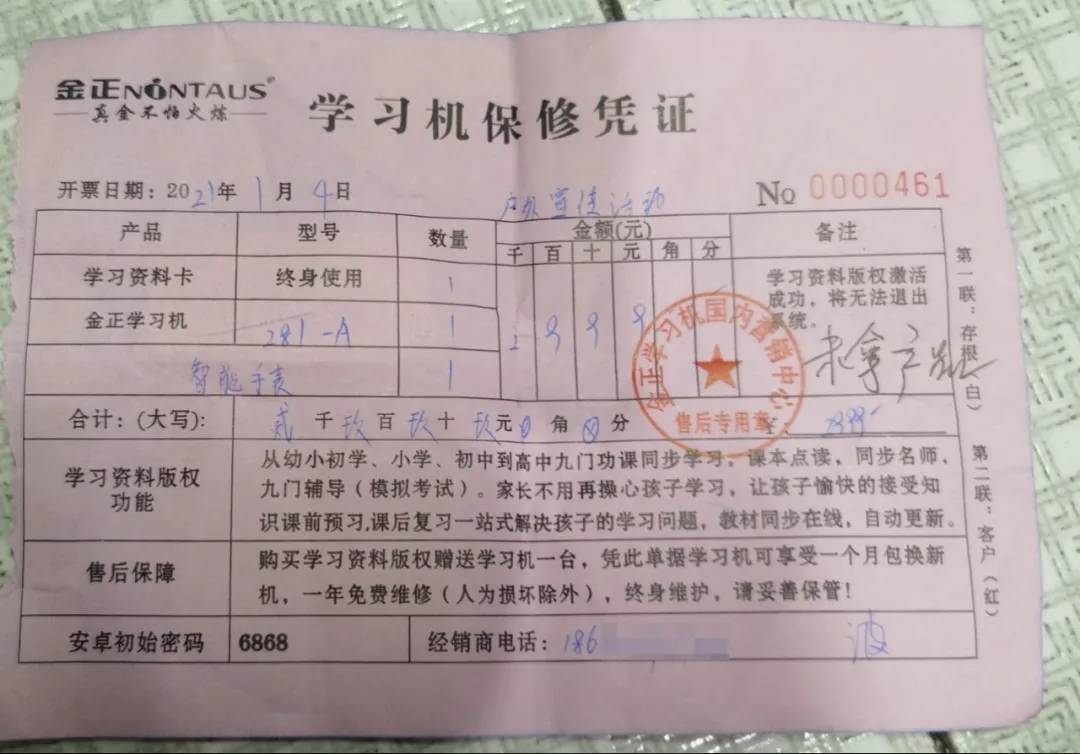 金正NONTAUS®
真金不怕火炼
学习机保修凭证
开票日期：2021年1月4日
户外宣传活动
No 0000461
产品 型号 数量 金额(元) 备注
千 百 十 元 角 分
学习资料卡 终身使用 1
学习资料版权激活成功，将无法退出系统。
金正学习机 281-A 1 2 9 9 9
智能手表 1
金正学习机国内营销中心
售后专用章
合计：(大写)： 贰千玖百玖十玖元0角0分
学习资料版权功能
从幼小初学、小学、初中到高中九门功课同步学习，课本点读，同步名师、
九门辅导（模拟考试）。家长不用再操心孩子学习，让孩子愉快的接受知
识课前预习,课后复习一站式解决孩子的学习问题，教材同步在线，自动更新。
售后保障
购买学习资料版权赠送学习机一台，凭此单据学习机可享受一个月包换新
机，一年免费维修（人为损坏除外），终身维护，请妥善保管！
安卓初始密码 6868 经销商电话：186 波
第一联：存根（白）
第二联：客户（红）